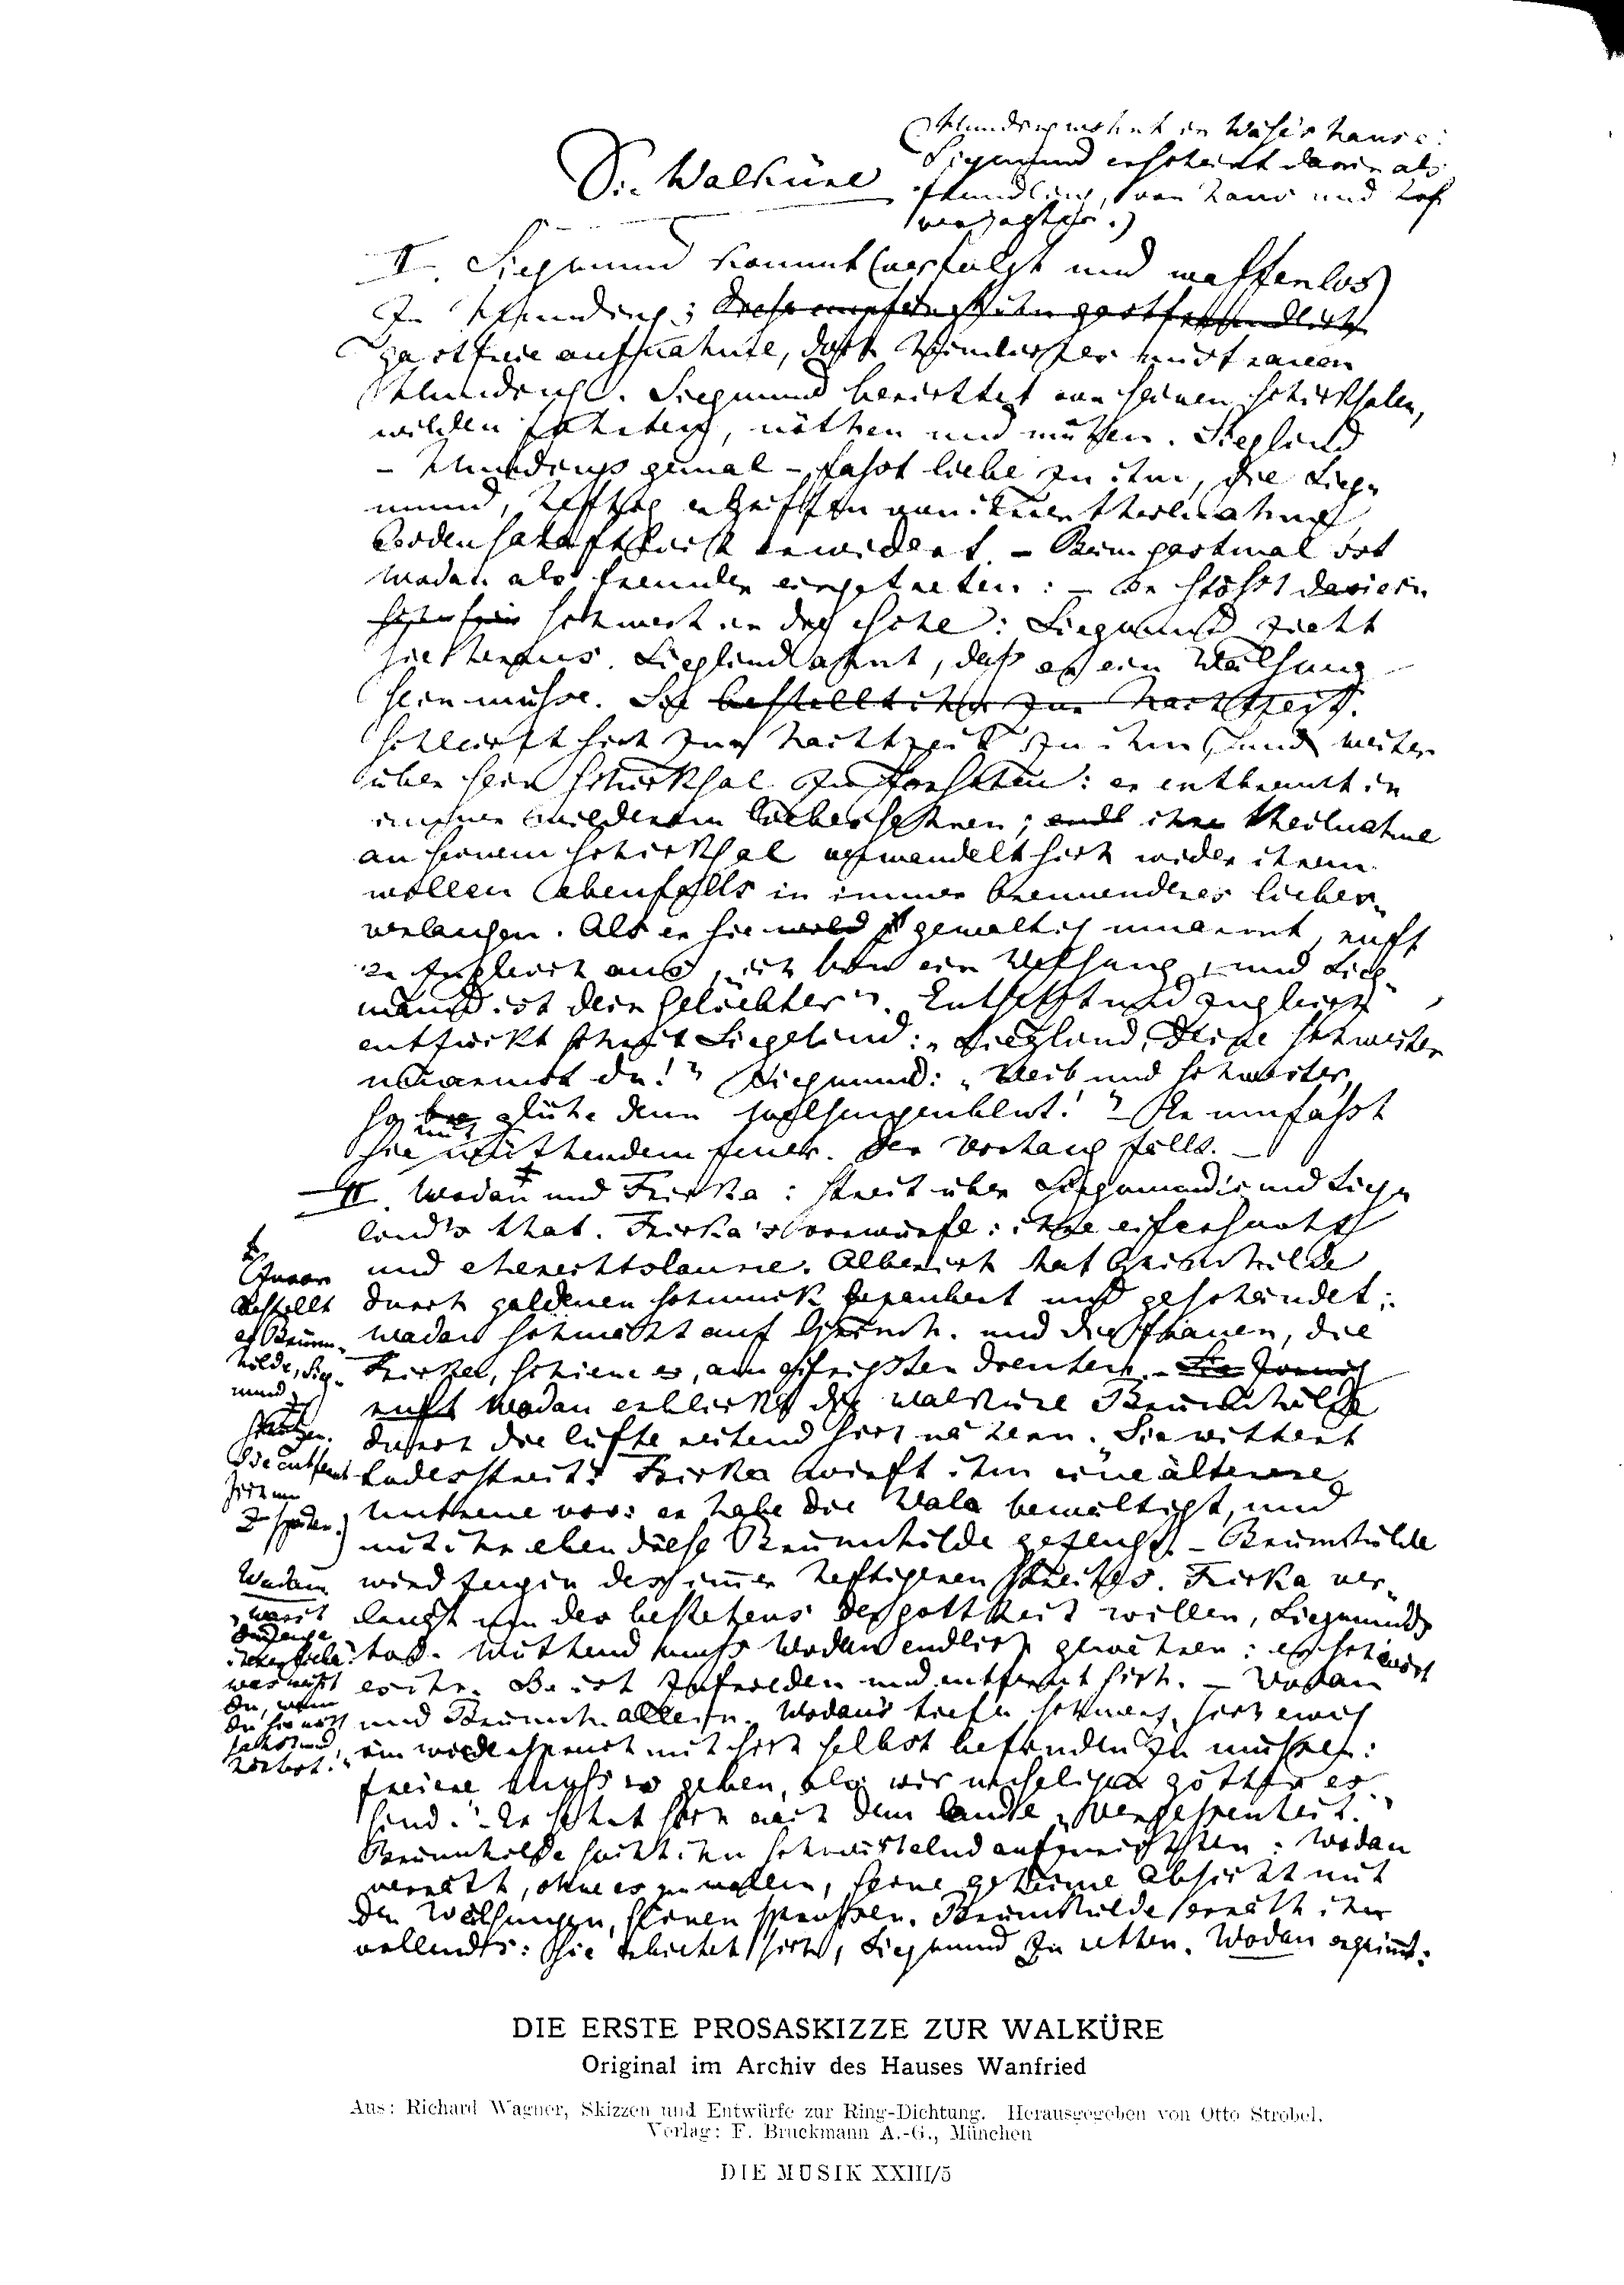 Die Walküre
in Wälse's hause:
Siegmund erscheint darin als
fremdling, von haus und hof
verjagter.)
I. Siegmund kommt (verfolgt und waffenlos)
zu Hunding;
gastfreie aufnahme, doch
Siegmund berichtet von seinen schicksalen,
wilden fahrten, nöthen und mühen. Sieglind
gemal - fasst liebe zu ihm, die Sieg-
mund, heftig ergriffen von ihrer theilnahme
leidenschaftlich erwidert. - Beim gastmal ist
Wodan als fremder eingetreten: - er stösst
schwert in die esche: Siegmund zieht
heraus. Sieglind ahnt, daß er ein Wälsung
sein müsse. Sie bestellt ihn zur nachtzeit.
schleicht sich zur nachtzeit zu ihm und weiter
über sein schicksal zu forschen: er entbrennt in
immer wilderem liebessehnen; ihre theilnahme
an seinem schicksal verwandelt sich wider ihren
willen ebenfalls in immer brennenderes liebes-
verlangen. Als er sie wild gewaltig umarmt, ruft
er zugleich aus „ich bin ein Wälsung, und Sieg-
mund ist dein geliebter". Entsetzt und zugleich
entzückt schreit Siegelind: „Sieglind, deine schwester
umarmst du!" Siegmund: „Weib und schwester,
so glühe denn wälsungenblut!" Er umfasst
sie mit wüthendem feuer. Der vorhang fällt. -
II. Wodan und Fricka: streit über Siegmund's und Sieg-
lind's that. Fricka's vorwürfe: ihre eifersucht
und eherechtslaune. Alberich hat Grimhilde
durch goldenen schmuck bezaubert und geschändet:
Wodan schmäht auf und die frauen, die
Fricka, schiene es, am eifrigsten
ruft Wodan erblickt die walküre Brünnhilde
durch die lüfte reitend sich nähern. Sie wittert
Fricka wirft ihm eine ältere
untreue vor: er habe die Wala bewältigt, und
mit ihr eben diese Brünnhilde gezeugt. - Brünnhilde
wird zeugin des immer heftigeren streites. Fricka ver-
langt um des bestehens der gottheit willen, Siegmund's
tod. Wüthend muss Wodan endlich gewähren: er schwört
es ihr. Sie ist zufrieden und entfernt sich. - Wodan
und Brünnh. allein. Wodan's tiefer schmerz, sich ewig
im widerspruch mit sich selbst befinden zu müssen:
freiere muss es geben, als wir unseligen götter es
sind." Er sehnt sich nach dem lande „Vergessenheit."
Brünnhilde sucht ihn schmeichelnd aufzurichten: Wodan
verräth, ohne es zu wollen, seine geheime absicht mit
den Wälsungen, seinen sprossen. Brünnhilde erräth ihn
vollends: sie erbietet sich, Siegmund zu retten. Wodan ergrimmt:
Zuvor
bestellt
er Brünn-
hilde, Sieg-
mund zu
schützen.
Sie entfernt
sich um
zu spähen.)
Wodan
was weisst
du, wenn
du sie nicht
hörtest."
DIE ERSTE PROSASKIZZE ZUR WALKÜRE
Original im Archiv des Hauses Wanfried
Aus: Richard Wagner, Skizzen und Entwürfe zur Ring-Dichtung. Herausgegeben von Otto Strobel.
Verlag: F. Bruckmann A.-G., München
DIE MUSIK XXIII/5